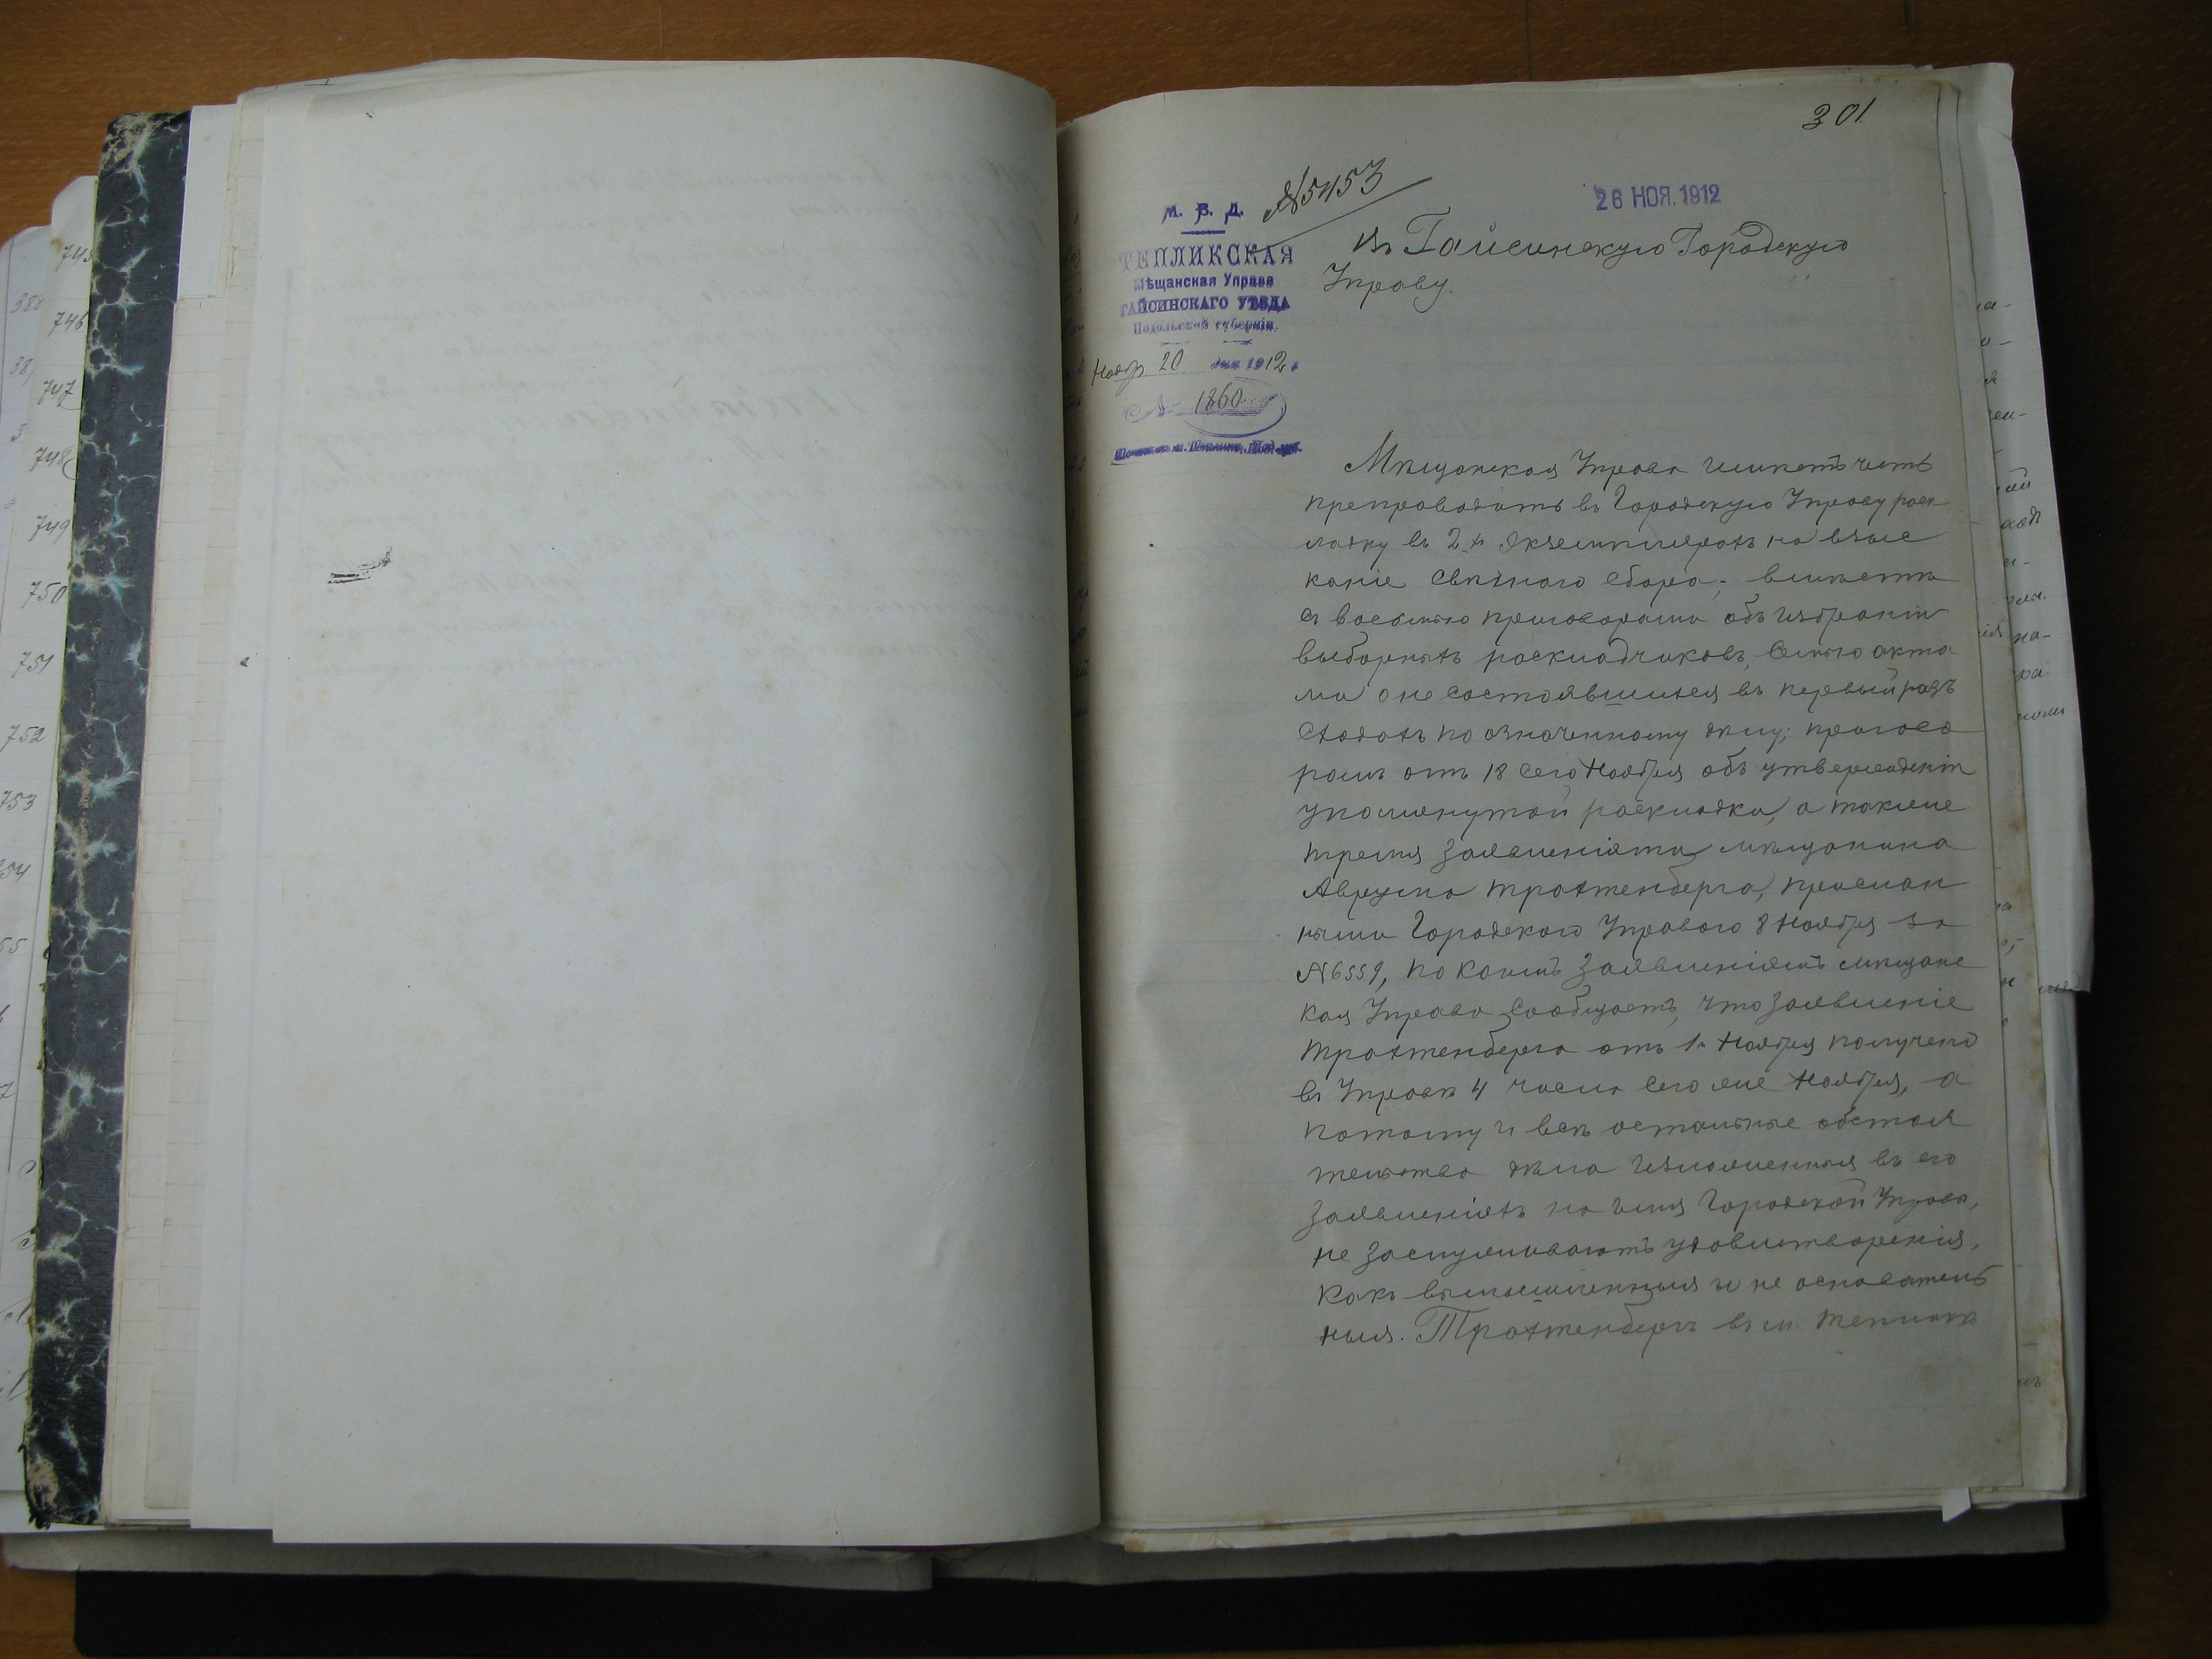 301
№5453
26 НОЯ. 1912
М. В. Д.
ТЕПЛИКСКАЯ
Мѣщанская Управа
ГАЙСИНСКАГО УѢЗДА
Подольской губерніи.
Нояб 20 дня 1912 г
№ 1860
Въ Гайсинскую Городскую
Управу.
Мѣщанская Управа имѣетъ честь
препроводить въ Городскую Управу раск
ладку въ 2х экземплярахъ на взыс
каніе свѣчного сбора; вмѣстѣ
съ восемью приговорами объ избраніи
выборныхъ раскладчиковъ, семью акта
ми о не состоявшихся въ первый разъ
сходахъ по означенному дѣлу; пригово
ромъ отъ 18 сего Ноября объ утвержденіи
упомянутой раскладки, а также
тремя заявленіями мѣщанина
Аврума Трахтенберга, прислан
ными Городскою Управою 8 Ноября за
№6559, по коимъ заявленіямъ мѣщанс
кая Управа сообщаетъ, что заявленіе
Трахтенберга отъ 1 Ноября получено
въ Управѣ 4 числа сего же Ноября, а
потому и всѣ остальные обстоя
тельства дѣла изложенныя въ его
заявленіяхъ на имя Городской Управы,
не заслуживаютъ удовлетворенія,
какъ вымышленныя и не основатель
ныя. Трахтенбергъ въ м. Тепликѣ
743
746
747
748
749
750
751
752
753